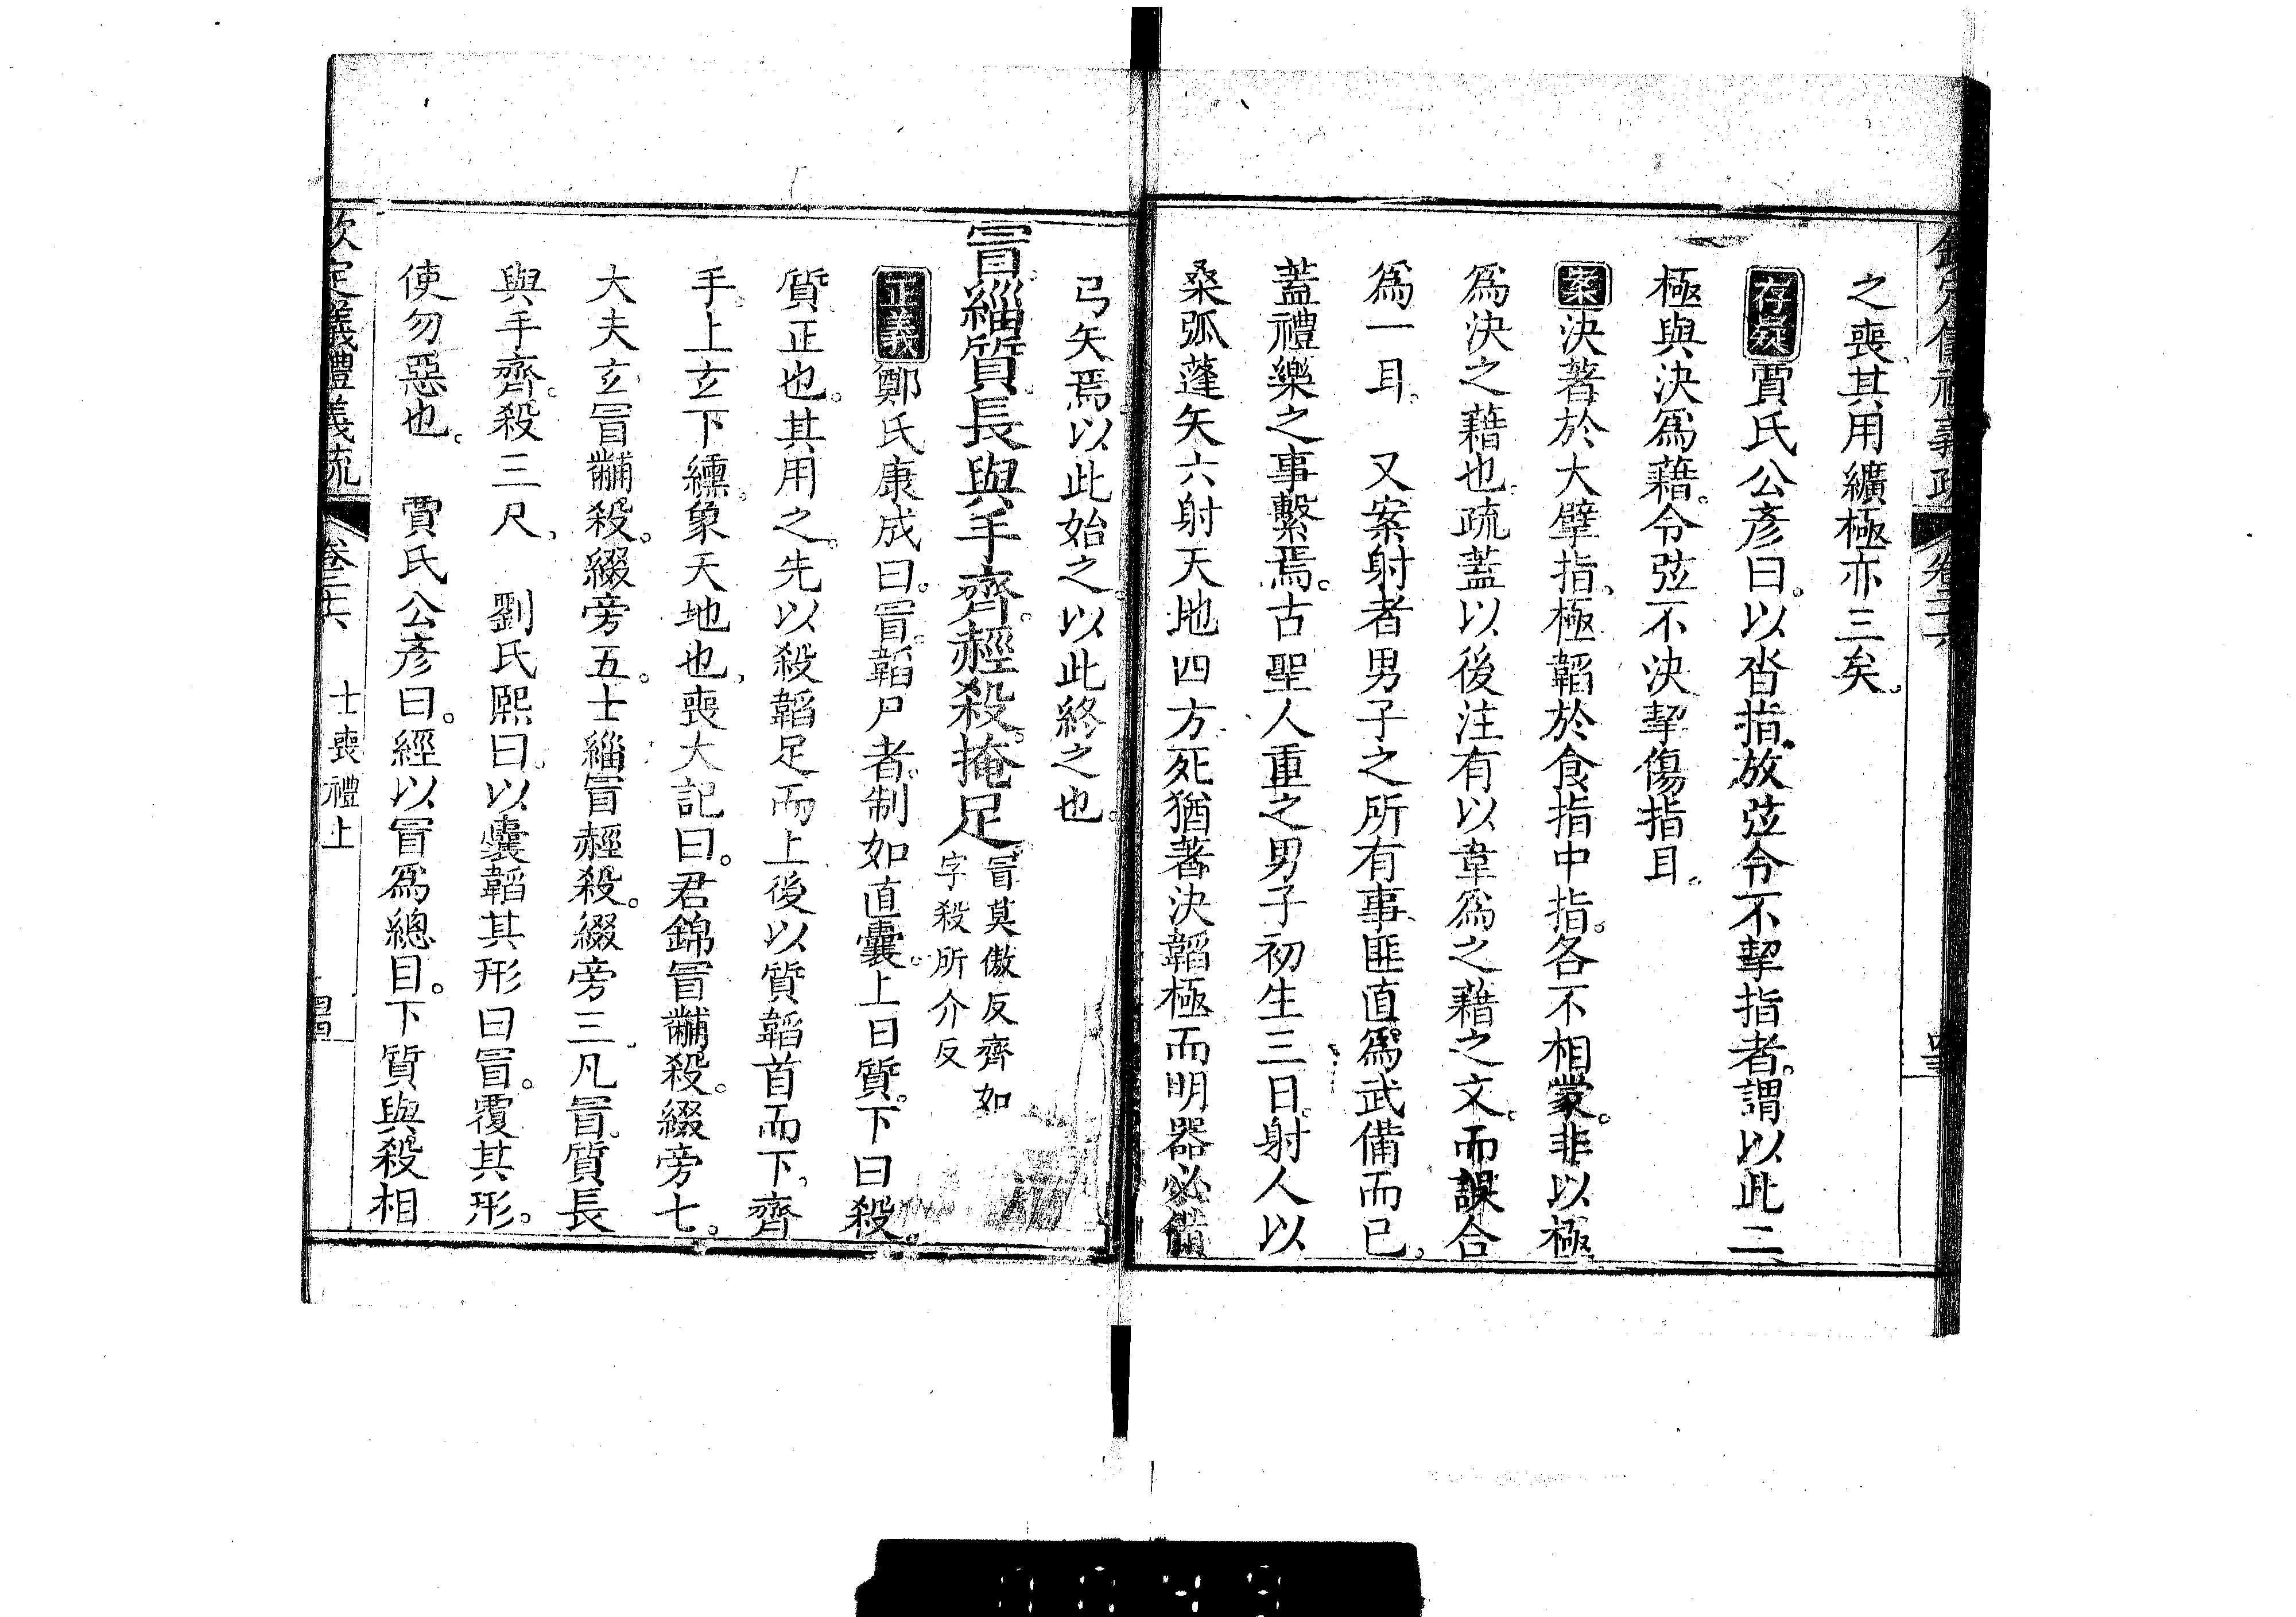 之喪其用纊極亦三矣。
存疑賈氏公彥曰。以沓指放弦令不挈指者。謂以此二
極與決爲藉。令弦不決挈傷指耳。
案決著於大擘指、極韜於食指中指。各不相蒙。非以極
爲決之藉也。疏蓋以後注有以韋爲之藉之文。而誤合
爲一耳。 又案射者男子之所有事、匪直爲武備而已。
蓋禮樂之事繫焉。古聖人重之男子初生三日。射人以
桑弧蓬矢六射天地四方、死猶著決韜極而明器必備
弓矢焉。以此始之。以此終之也。
冒緇質。長與手齊。䞓殺。掩足。冒莫傲反齊如
字殺所介反
正義鄭氏康成曰。冒。韜尸者。制如直囊。上曰質。下曰殺。
質正也。其用之。先以殺韜足而上後以質韜首而下。齊
手。上玄下纁。象天地也。喪大記曰。君錦冒黼殺。綴旁七。
大夫玄冒黼殺。綴旁五。士緇冒䞓殺。綴旁三。凡冒。質長
與手齊。殺三尺。 劉氏熙曰。以囊韜其形曰冒。覆其形。
使勿惡也。 賈氏公彥曰。經以冒爲總目。下質與殺相
欽定儀禮義疏 卷二十六 士喪禮上